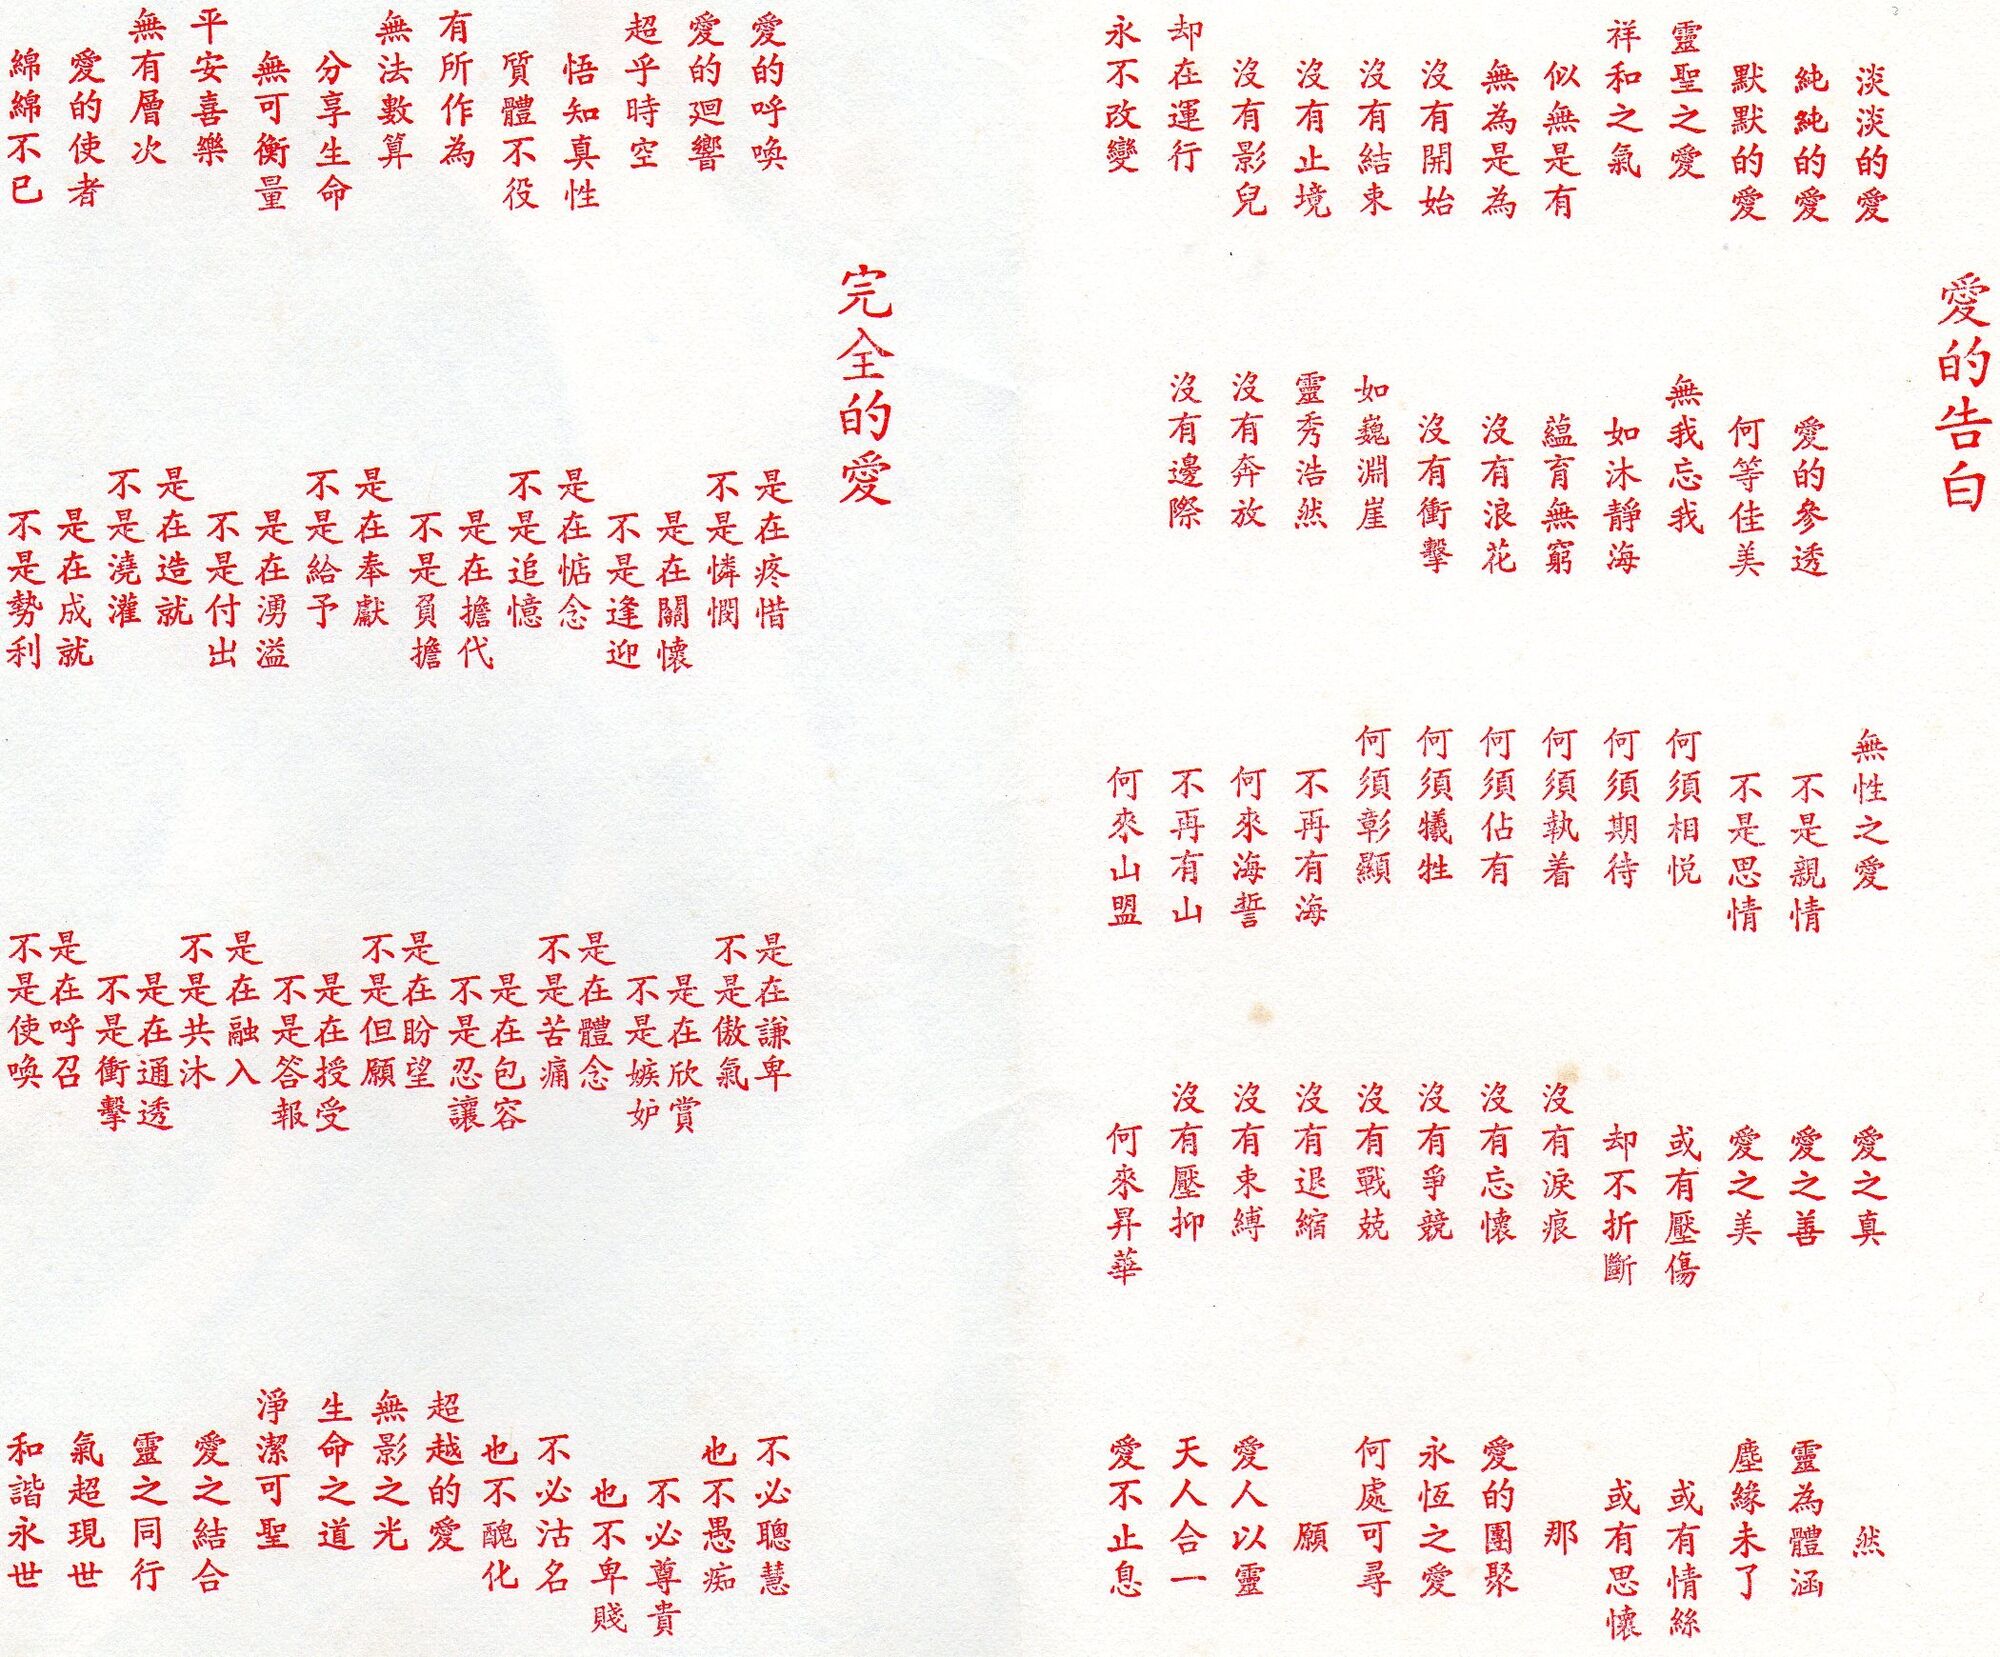 愛的告白
淡淡的愛
純純的愛
默默的愛
靈聖之愛
祥和之氣
似無是有
無為是為
沒有開始
沒有結束
沒有止境
沒有影兒
却在運行
永不改變
愛的參透
何等佳美
無我忘我
如沐靜海
蘊育無窮
沒有浪花
沒有衝擊
如巍淵崖
靈秀浩然
沒有奔放
沒有邊際
無性之愛
不是親情
不是思情
何須相悅
何須期待
何須執着
何須佔有
何須犧牲
何須彰顯
不再有海
何來海誓
不再有山
何來山盟
愛之真
愛之善
愛之美
或有壓傷
却不折斷
沒有淚痕
沒有忘懷
沒有爭競
沒有戰兢
沒有退縮
沒有束縛
沒有壓抑
何來昇華
然
靈為體涵
塵緣未了
或有情絲
或有思懷
那
愛的團聚
永恆之愛
何處可尋
願
愛人以靈
天人合一
愛不止息
完全的愛
愛的呼喚
愛的廻響
超乎時空
悟知真性
質體不役
有所作為
無法數算
分享生命
無可衡量
平安喜樂
無有層次
愛的使者
綿綿不已
是在疼惜
不是憐憫
是在關懷
不是逢迎
是在惦念
不是追憶
是在擔代
不是負擔
是在奉獻
不是給予
是在湧溢
不是付出
是在造就
不是澆灌
是在成就
不是勢利
是在謙卑
不是傲氣
是在欣賞
不是嫉妒
是在體念
不是苦痛
是在包容
不是忍讓
是在盼望
不是但願
是在授受
不是答報
是在融入
不是共沐
是在通透
不是衝擊
是在呼召
不是使喚
不必聰慧
也不愚痴
不必尊貴
也不卑賤
不必沽名
也不醜化
超越的愛
無影之光
生命之道
淨潔可聖
愛之結合
靈之同行
氣超現世
和諧永世